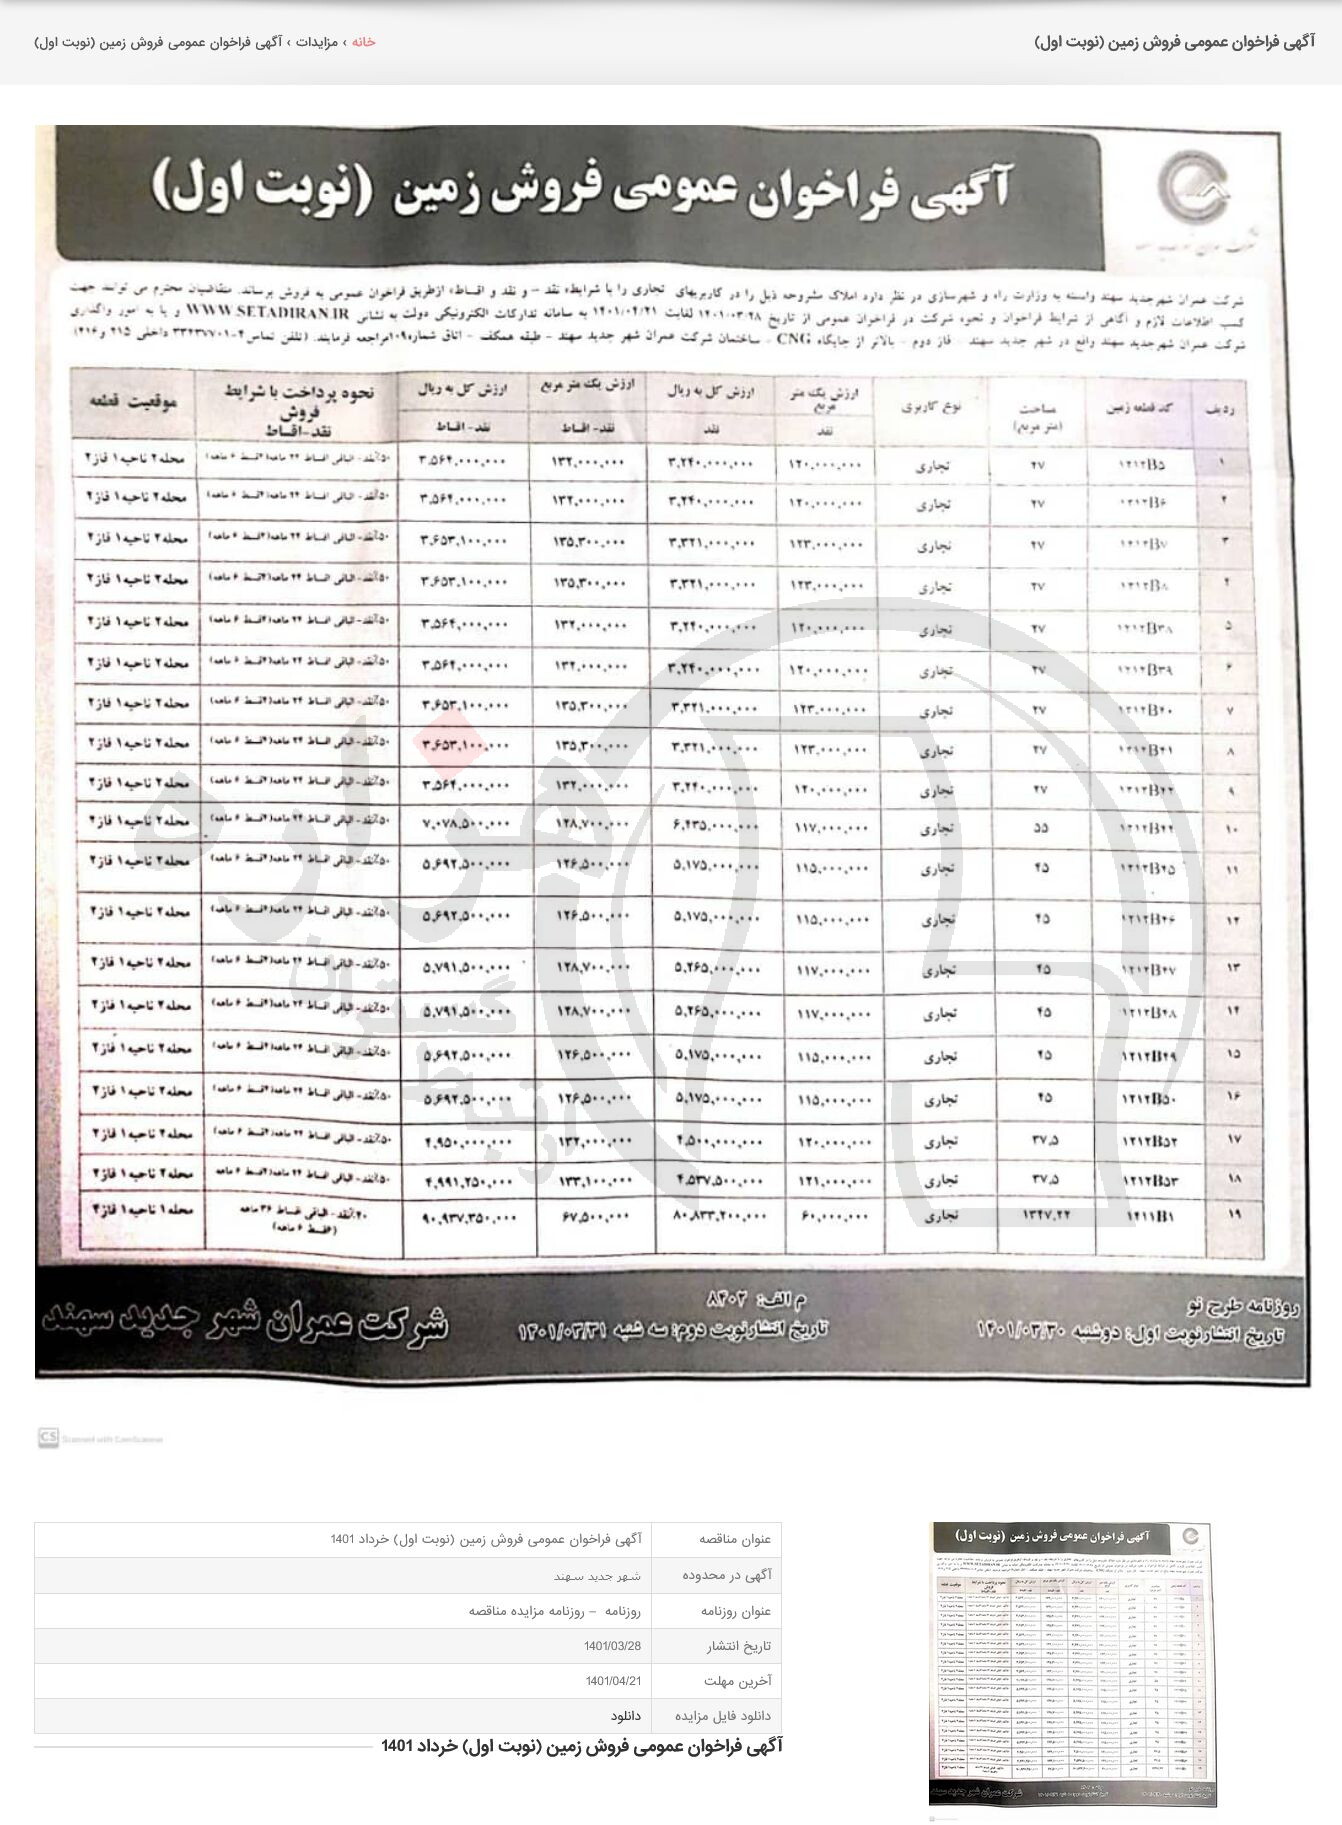 آگهی فراخوان عمومی فروش زمین (نوبت اول)
خانه › مزایدات › آگهی فراخوان عمومی فروش زمین (نوبت اول)
آگهی فراخوان عمومی فروش زمین (نوبت اول)
شرکت عمران شهر جدید سهند وابسته به وزارت راه و شهرسازی در نظر دارد املاک مشروحه ذیل را در کاربریهای تجاری را با شرایط« نقد - و نقد و اقساط» ازطریق فراخوان عمومی به فروش برساند. متقاضیان محترم می توانند جهت
کسب اطلاعات لازم و آگاهی از شرایط فراخوان و نحوه شرکت در فراخوان عمومی از تاریخ ۱۴۰۱/۰۳/۲۸ لغایت ۱۴۰۱/۰۴/۲۱ به سامانه تدارکات الکترونیکی دولت به نشانی WWW.SETADIRAN.IR و یا به امور واگذاری
شرکت عمران شهرجدید سهند واقع در شهر جدید سهند - فاز دوم - بالاتر از جایگاه CNG - ساختمان شرکت عمران شهر جدید سهند - طبقه همکف - اتاق شماره۱۰۹مراجعه فرمایند. (تلفن تماس۴-۳۳۴۳۷۷۰۱ داخلی ۲۱۵ و۲۱۶)
ردیف کد قطعه زمین مساحت (متر مربع) نوع کاربری ارزش یک متر مربع نقد ارزش کل به ریال نقد ارزش یک متر مربع نقد-اقساط ارزش کل به ریال نقد-اقساط نحوه پرداخت با شرایط فروش نقد-اقساط موقعیت قطعه
۱ ۱۲۱۲B۵ ۲۷ تجاری ۱۲۰،۰۰۰،۰۰۰ ۳،۲۴۰،۰۰۰،۰۰۰ ۱۳۲،۰۰۰،۰۰۰ ۳،۵۶۴،۰۰۰،۰۰۰ ۵۰٪نقد-الباقی اقساط ۲۴ ماهه(۴قسط ۶ ماهه) محله۲ ناحیه۱ فاز۲
۲ ۱۲۱۲B۶ ۲۷ تجاری ۱۲۰،۰۰۰،۰۰۰ ۳،۲۴۰،۰۰۰،۰۰۰ ۱۳۲،۰۰۰،۰۰۰ ۳،۵۶۴،۰۰۰،۰۰۰ ۵۰٪نقد-الباقی اقساط ۲۴ ماهه(۴قسط ۶ ماهه) محله۲ ناحیه۱ فاز۲
۳ ۱۲۱۲B۷ ۲۷ تجاری ۱۲۳،۰۰۰،۰۰۰ ۳،۳۲۱،۰۰۰،۰۰۰ ۱۳۵،۳۰۰،۰۰۰ ۳،۶۵۳،۱۰۰،۰۰۰ ۵۰٪نقد-الباقی اقساط ۲۴ ماهه(۴قسط ۶ ماهه) محله۲ ناحیه۱ فاز۲
۴ ۱۲۱۲B۸ ۲۷ تجاری ۱۲۳،۰۰۰،۰۰۰ ۳،۳۲۱،۰۰۰،۰۰۰ ۱۳۵،۳۰۰،۰۰۰ ۳،۶۵۳،۱۰۰،۰۰۰ ۵۰٪نقد-الباقی اقساط ۲۴ ماهه(۴قسط ۶ ماهه) محله۲ ناحیه۱ فاز۲
۵ ۱۲۱۲B۳۸ ۲۷ تجاری ۱۲۰،۰۰۰،۰۰۰ ۳،۲۴۰،۰۰۰،۰۰۰ ۱۳۲،۰۰۰،۰۰۰ ۳،۵۶۴،۰۰۰،۰۰۰ ۵۰٪نقد-الباقی اقساط ۲۴ ماهه(۴قسط ۶ ماهه) محله۲ ناحیه۱ فاز۲
۶ ۱۲۱۲B۳۹ ۲۷ تجاری ۱۲۰،۰۰۰،۰۰۰ ۳،۲۴۰،۰۰۰،۰۰۰ ۱۳۲،۰۰۰،۰۰۰ ۳،۵۶۴،۰۰۰،۰۰۰ ۵۰٪نقد-الباقی اقساط ۲۴ ماهه(۴قسط ۶ ماهه) محله۲ ناحیه۱ فاز۲
۷ ۱۲۱۲B۴۰ ۲۷ تجاری ۱۲۳،۰۰۰،۰۰۰ ۳،۳۲۱،۰۰۰،۰۰۰ ۱۳۵،۳۰۰،۰۰۰ ۳،۶۵۳،۱۰۰،۰۰۰ ۵۰٪نقد-الباقی اقساط ۲۴ ماهه(۴قسط ۶ ماهه) محله۲ ناحیه۱ فاز۲
۸ ۱۲۱۲B۴۱ ۲۷ تجاری ۱۲۳،۰۰۰،۰۰۰ ۳،۳۲۱،۰۰۰،۰۰۰ ۱۳۵،۳۰۰،۰۰۰ ۳،۶۵۳،۱۰۰،۰۰۰ ۵۰٪نقد-الباقی اقساط ۲۴ ماهه(۴قسط ۶ ماهه) محله۲ ناحیه۱ فاز۲
۹ ۲۷ تجاری ۱۲۰،۰۰۰،۰۰۰ ۳،۲۴۰،۰۰۰،۰۰۰ ۱۳۲،۰۰۰،۰۰۰ ۳،۵۶۴،۰۰۰،۰۰۰ ۵۰٪نقد-الباقی اقساط ۲۴ ماهه(۴قسط ۶ ماهه) محله۲ ناحیه۱ فاز۲
۱۰ ۱۲۱۲B۴۴ ۵۵ تجاری ۱۱۷،۰۰۰،۰۰۰ ۶،۴۳۵،۰۰۰،۰۰۰ ۱۲۸،۷۰۰،۰۰۰ ۷،۰۷۸،۵۰۰،۰۰۰ ۵۰٪نقد-الباقی اقساط ۲۴ ماهه(۴قسط ۶ ماهه) محله۲ ناحیه۱ فاز۲
۱۱ ۱۲۱۲B۴۵ ۴۵ تجاری ۱۱۵،۰۰۰،۰۰۰ ۵،۱۷۵،۰۰۰،۰۰۰ ۱۲۶،۵۰۰،۰۰۰ ۵،۶۹۲،۵۰۰،۰۰۰ ۵۰٪نقد-الباقی اقساط ۲۴ ماهه(۴قسط ۶ ماهه) محله۲ ناحیه۱ فاز۲
۱۲ ۱۲۱۲B۴۶ ۴۵ تجاری ۱۱۵،۰۰۰،۰۰۰ ۵،۱۷۵،۰۰۰،۰۰۰ ۱۲۶،۵۰۰،۰۰۰ ۵،۶۹۲،۵۰۰،۰۰۰ ۵۰٪نقد-الباقی اقساط ۲۴ ماهه(۴قسط ۶ ماهه) محله۲ ناحیه۱ فاز۲
۱۳ ۱۲۱۲B۴۷ ۴۵ تجاری ۱۱۷،۰۰۰،۰۰۰ ۵،۲۶۵،۰۰۰،۰۰۰ ۱۲۸،۷۰۰،۰۰۰ ۵،۷۹۱،۵۰۰،۰۰۰ ۵۰٪نقد-الباقی اقساط ۲۴ ماهه(۴قسط ۶ ماهه) محله۲ ناحیه۱ فاز۲
۱۴ ۱۲۱۲B۴۸ ۴۵ تجاری ۱۱۷،۰۰۰،۰۰۰ ۵،۲۶۵،۰۰۰،۰۰۰ ۱۲۸،۷۰۰،۰۰۰ ۵،۷۹۱،۵۰۰،۰۰۰ ۵۰٪نقد-الباقی اقساط ۲۴ ماهه(۴قسط ۶ ماهه) محله۲ ناحیه۱ فاز۲
۱۵ ۱۲۱۲B۴۹ ۴۵ تجاری ۱۱۵،۰۰۰،۰۰۰ ۵،۱۷۵،۰۰۰،۰۰۰ ۱۲۶،۵۰۰،۰۰۰ ۵،۶۹۲،۵۰۰،۰۰۰ ۵۰٪نقد-الباقی اقساط ۲۴ ماهه(۴قسط ۶ ماهه) محله۲ ناحیه۱ فاز۲
۱۶ ۱۲۱۲B۵۰ ۴۵ تجاری ۱۱۵،۰۰۰،۰۰۰ ۵،۱۷۵،۰۰۰،۰۰۰ ۱۲۶،۵۰۰،۰۰۰ ۵،۶۹۲،۵۰۰،۰۰۰ ۵۰٪نقد-الباقی اقساط ۲۴ ماهه(۴قسط ۶ ماهه) محله۲ ناحیه۱ فاز۲
۱۷ ۱۲۱۲B۵۲ ۳۷،۵ تجاری ۱۲۰،۰۰۰،۰۰۰ ۴،۵۰۰،۰۰۰،۰۰۰ ۱۳۲،۰۰۰،۰۰۰ ۴،۹۵۰،۰۰۰،۰۰۰ ۵۰٪نقد-الباقی اقساط ۲۴ ماهه(۴قسط ۶ ماهه) محله۲ ناحیه۱ فاز۲
۱۸ ۱۲۱۲B۵۳ ۳۷،۵ تجاری ۱۲۱،۰۰۰،۰۰۰ ۴،۵۳۷،۵۰۰،۰۰۰ ۱۳۳،۱۰۰،۰۰۰ ۴،۹۹۱،۲۵۰،۰۰۰ ۵۰٪نقد-الباقی اقساط ۲۴ ماهه(۴قسط ۶ ماهه محله۲ ناحیه۱ فاز۲
۱۹ ۱۴۱۱B۱ ۱۳۴۷،۲۲ تجاری ۶۰،۰۰۰،۰۰۰ ۸۰،۸۳۳،۲۰۰،۰۰۰ ۶۷،۵۰۰،۰۰۰ ۹۰،۹۳۷،۳۵۰،۰۰۰ ۲۰٪نقد-الباقی قساط ۳۶ ماهه (۶قسط ۶ ماهه) محله۱ ناحیه۱ فاز۴
روزنامه طرح نو
تاریخ انتشارنوبت اول: دوشنبه ۱۴۰۱/۰۳/۳۰
م الف: ۸۴۰۲
تاریخ انتشارنوبت دوم: سه شنبه ۱۴۰۱/۰۳/۳۱
شرکت عمران شهر جدید سهند
CS Scanned with CamScanner
عنوان مناقصه آگهی فراخوان عمومی فروش زمین (نوبت اول) خرداد 1401
آگهی در محدوده شهر جدید سهند
عنوان روزنامه روزنامه – روزنامه مزایده مناقصه
تاریخ انتشار 1401/03/28
آخرین مهلت 1401/04/21
دانلود فایل مزایده دانلود
آگهی فراخوان عمومی فروش زمین (نوبت اول) خرداد 1401
آگهی فراخوان عمومی فروش زمین (نوبت اول)
شرکت عمران شهر جدید سهند